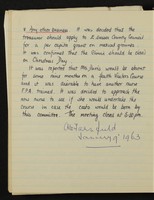 x Any other business. It was decided that the
treasurer should apply to E. Sussex County Council
for a per capita grant on medical grounds.
It was confirmed that the Clinic should be closed
on Christmas Day.
It was reported that Mrs. would be absent
for some nine months on a Health Visitors Course
and it was suitable to have another nurse
F.P.A. trained. It was decided to approach the
new nurse to see if she would undertake the
course in which case the costs would be born by
this committee. The meeting closed at 6.30 p.m.
January 1963